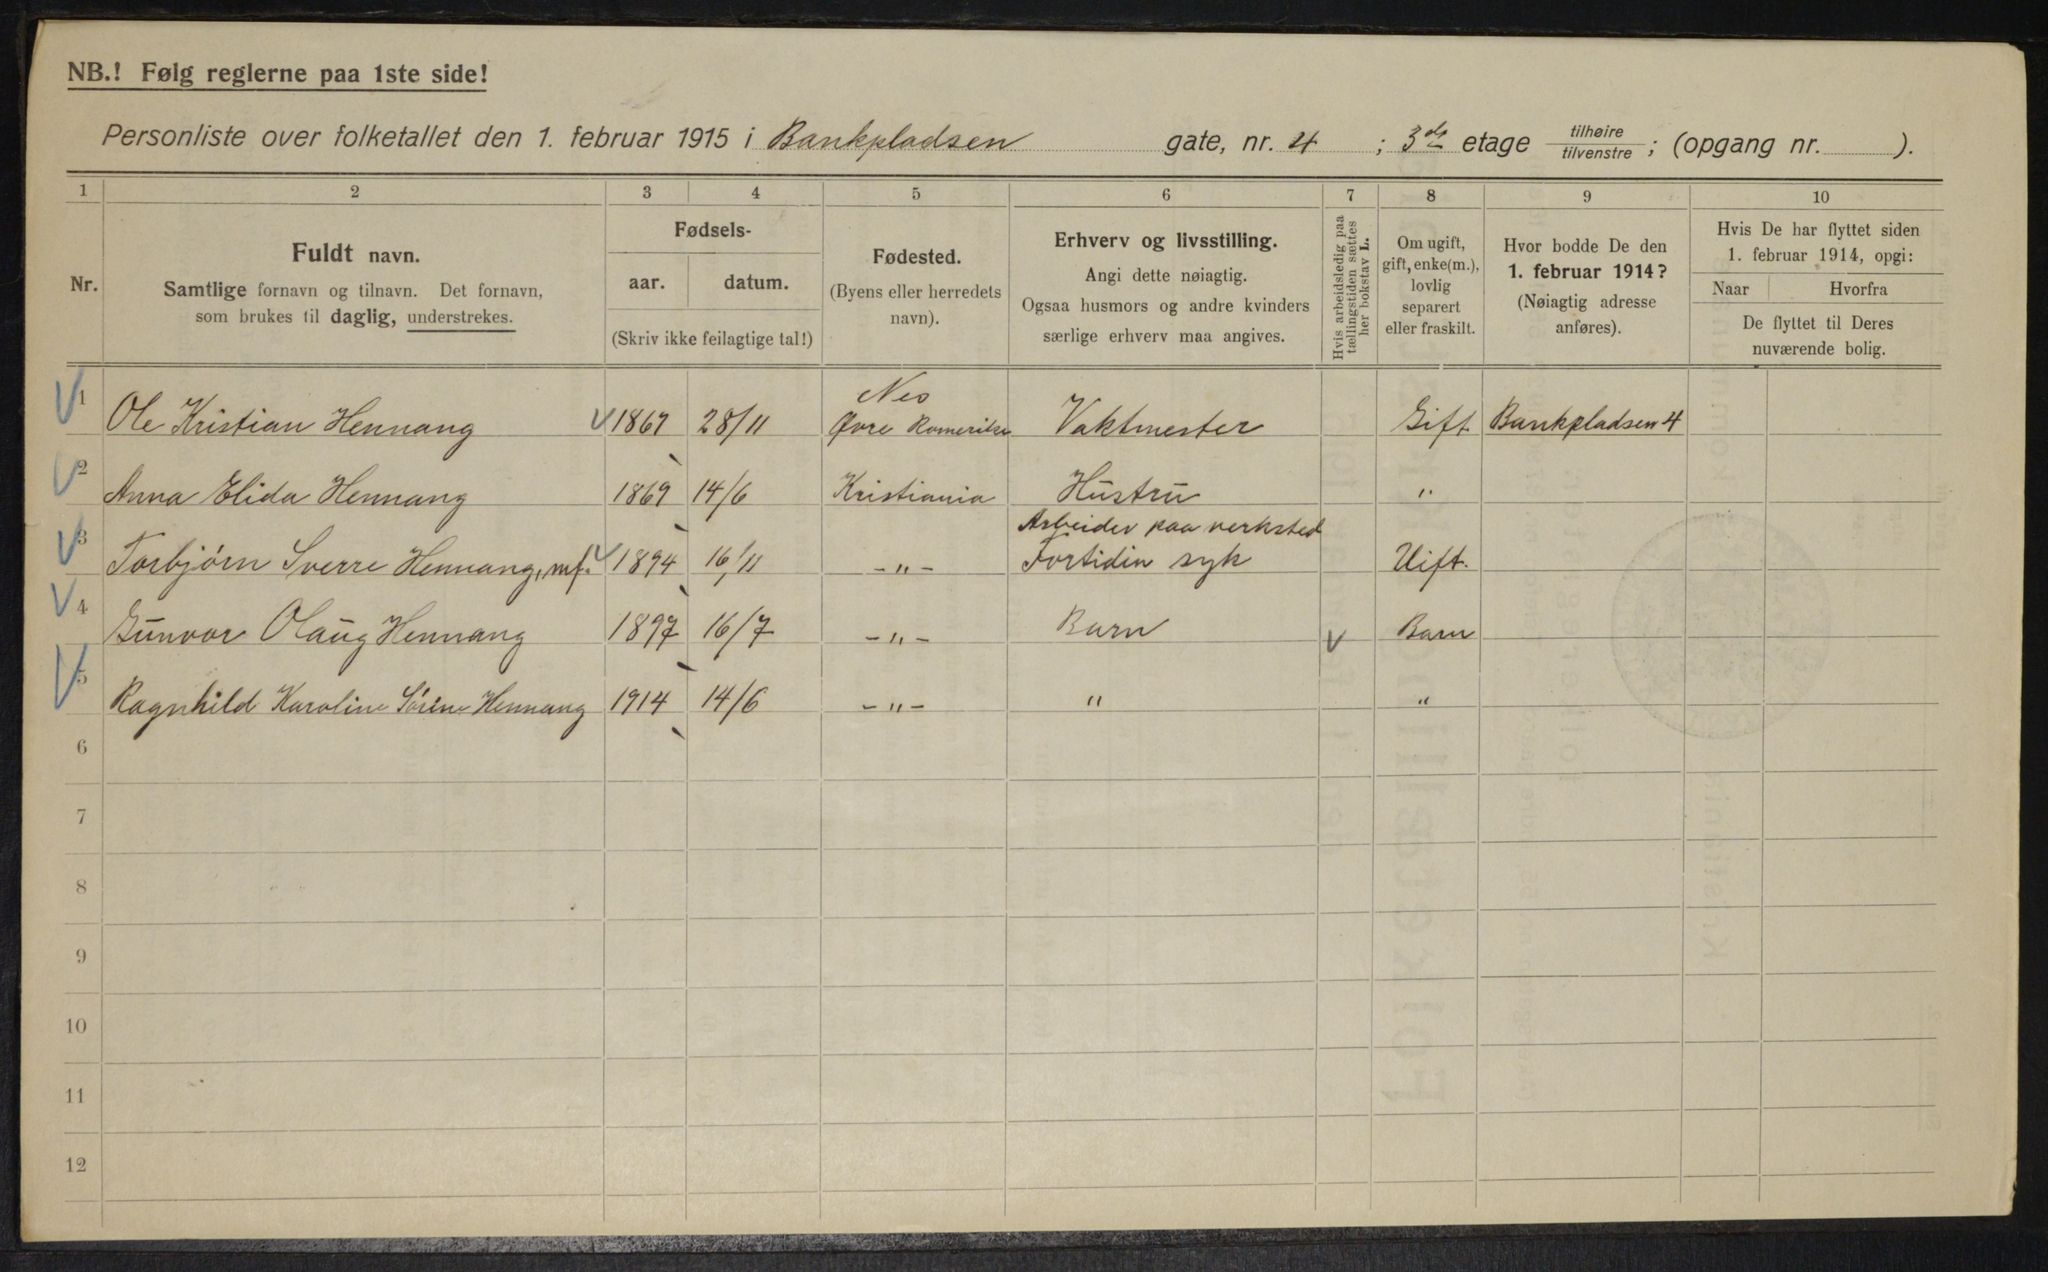 NB.! Følg reglerne paa 1ste side!
Personliste over folketallet den 1. februar 1915 i Bankpladsen gate, nr. 4 ; 3de etage tilhøire / tilvenstre ; (opgang nr. ).
1 2 3 4 5 6 7 8 9 10
Nr.
Fuldt navn.
Samtlige fornavn og tilnavn. Det fornavn,
som brukes til daglig, understrekes.
Fødsels-
aar. datum.
(Skriv ikke feilagtige tal!)
Fødested.
(Byens eller herredets
navn).
Erhverv og livsstilling.
Angi dette nøiagtig.
Ogsaa husmors og andre kvinders
særlige erhverv maa angives.
Hvis arbeidsledig paa
tællingstiden sættes
her bokstav L.
Om ugift,
gift, enke(m.),
lovlig
separert
eller fraskilt.
Hvor bodde De den
1. februar 1914?
(Nøiagtig adresse
anføres).
Hvis De har flyttet siden
1. februar 1914, opgi:
Naar Hvorfra
De flyttet til Deres
nuværende bolig.
Nes
1 Ole Kristian Hennang 1867 28/11 Øvre Romerike Vaktmester Gift Bankpladsen 4
2 Anna Elida Hennang 1869 14/6 Kristiania Hustru "
Arbeider paa verksted
3 Torbjørn Sverre Hennang, mf. 1894 16/11 -"- Fortidin syk Uift.
4 Gunvor Olaug Hennang 1897 16/7 -"- Barn Barn
5 Ragnhild Karoline Sørine Hennang 1914 14/6 -"- " "
6
7
8
9
10
11
12